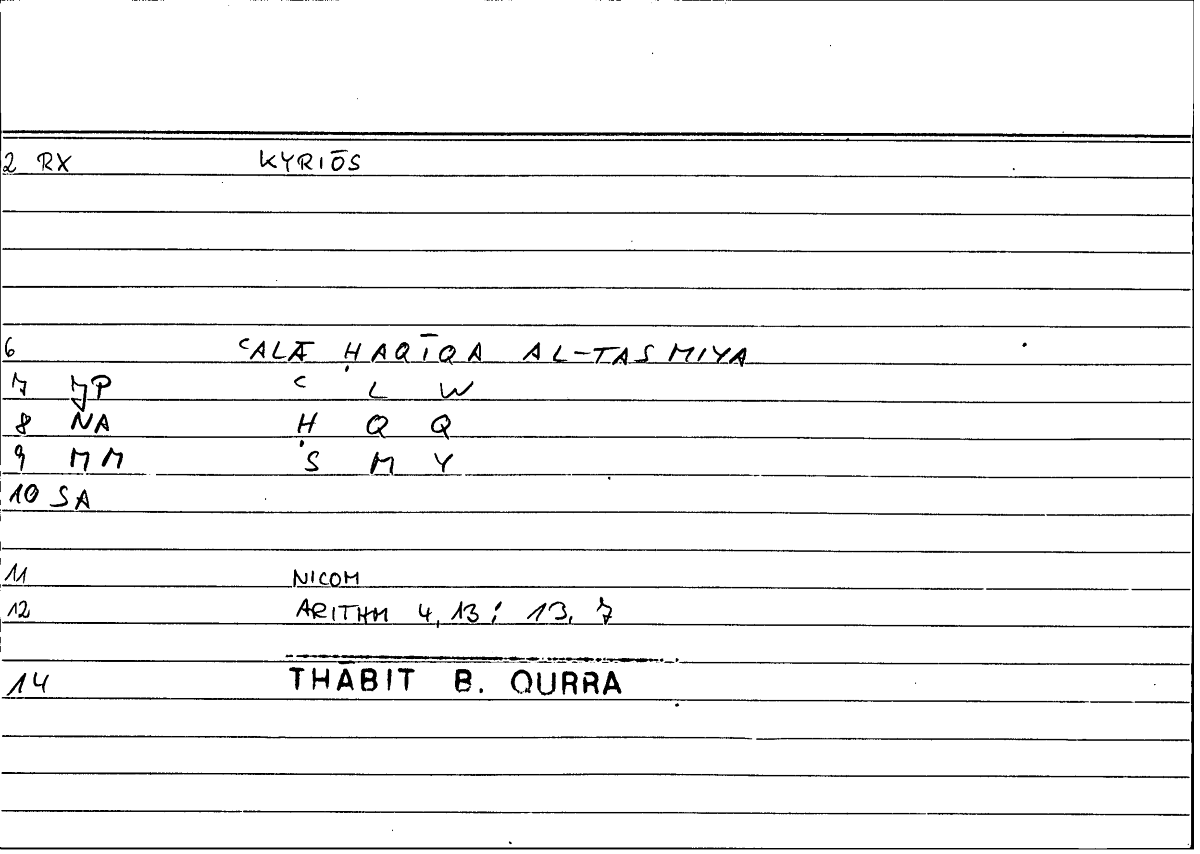 2 RX KYRIŌS
6 ʿALĀ ḤAQĪQA AL-TASMIYA
7 JP ʿ L W
8 NA Ḥ Q Q
9 MM S M Y
10 SA
11 NICOM
12 ARITHM 4, 13; 13, 7
14 THĀBIT B. QURRA